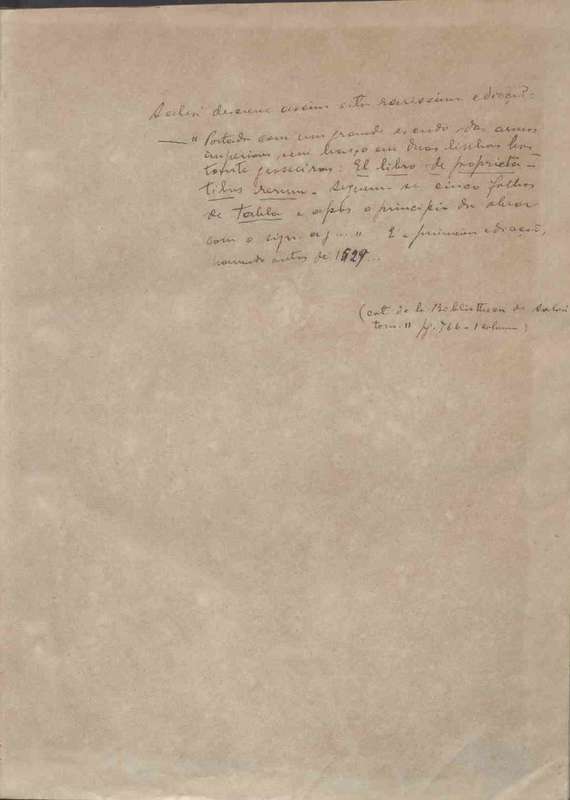 descreve assim esta rarissima edicção:
— " Portada com um grande escudo das armas
imperiaes sem em duas linhas
: El libro de proprieta-
tibus rerum. Seguem-se cinco folhas
de tabla e após o principio da obra
com o sign. a j ... " É a primeira edicção,
antes de 1529...
(cat. de la Bibliotheca de Salvá
tom. II pg. 766 - 1 columna)